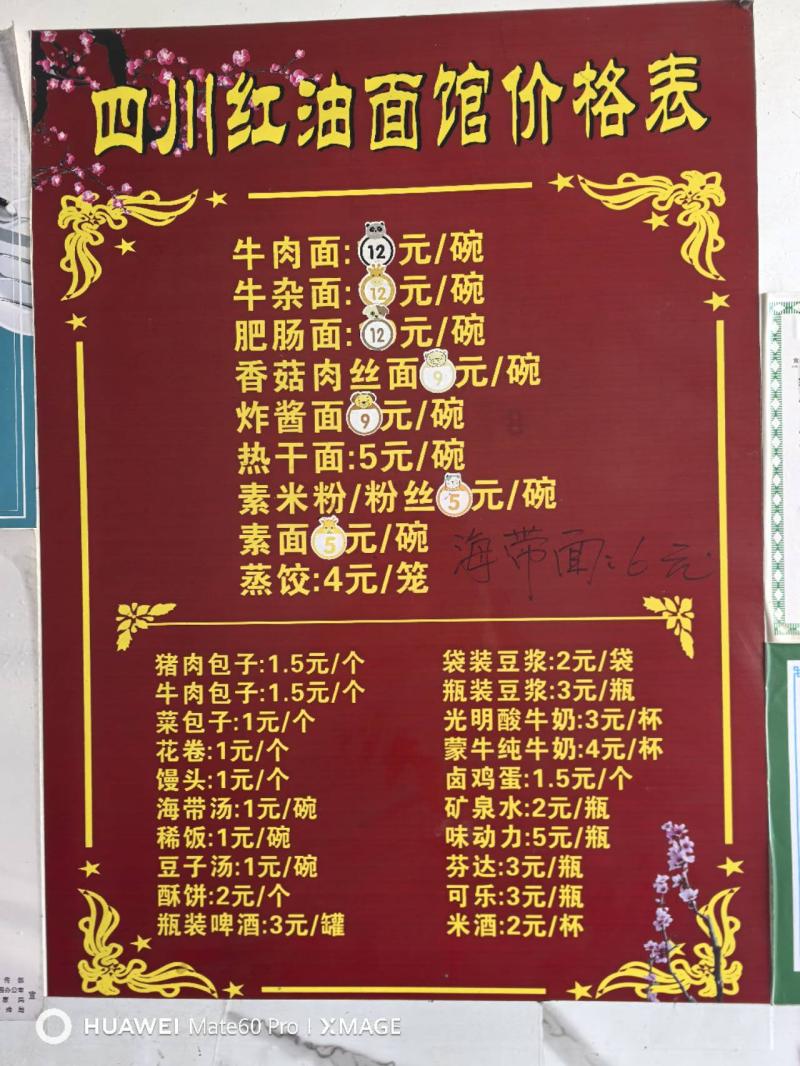 四川红油面馆价格表
牛肉面:12元/碗
牛杂面:12元/碗
肥肠面:12元/碗
香菇肉丝面9元/碗
炸酱面9元/碗
热干面:5元/碗
素米粉/粉丝5元/碗
素面5元/碗
海带面:6元
蒸饺:4元/笼
猪肉包子:1.5元/个
牛肉包子:1.5元/个
菜包子:1元/个
花卷:1元/个
馒头:1元/个
海带汤:1元/碗
稀饭:1元/碗
豆子汤:1元/碗
酥饼:2元/个
瓶装啤酒:3元/罐
袋装豆浆:2元/袋
瓶装豆浆:3元/瓶
光明酸牛奶:3元/杯
蒙牛纯牛奶:4元/杯
卤鸡蛋:1.5元/个
矿泉水:2元/瓶
味动力:5元/瓶
芬达:3元/瓶
可乐:3元/瓶
米酒:2元/杯
宣
HUAWEI Mate60 Pro | XMAGE